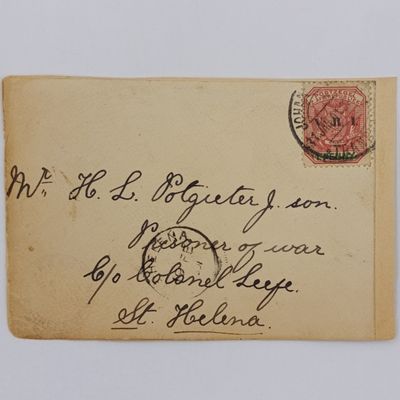 JOHAN
V. R. I.
PENNY
Mr. H. L. Potgieter J. son.
Prisoner of war
HELENA
C/o Colonel Leefe.
St. Helena.